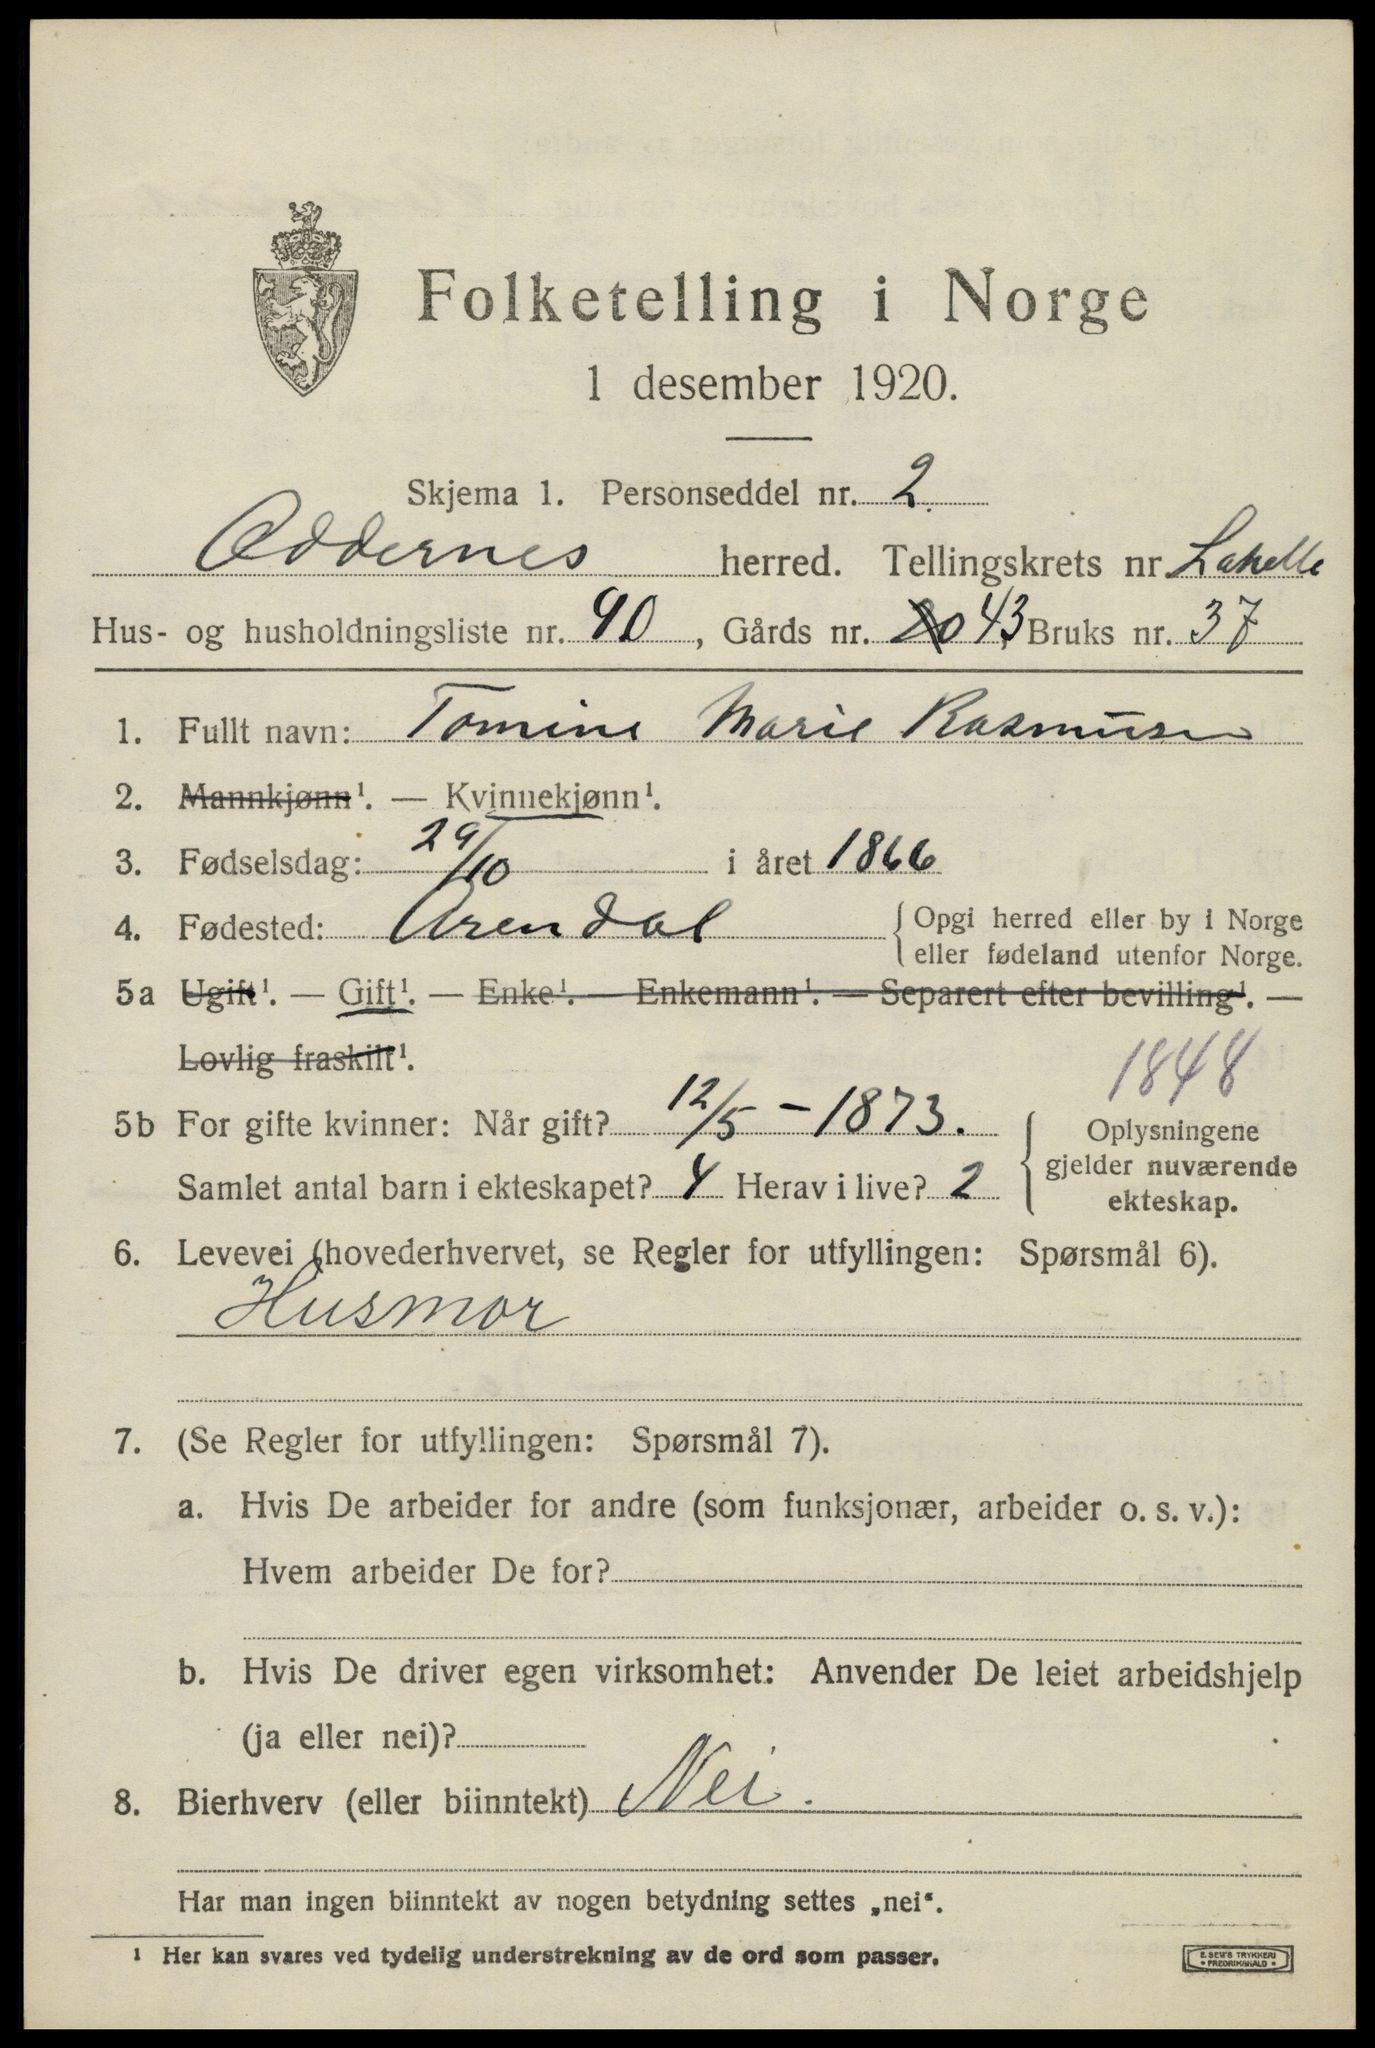 Folketelling i Norge
1 desember 1920.
Skjema 1. Personseddel nr. 2
Oddernes herred. Tellingskrets nr Lahelle
Hus- og husholdningsliste nr. 90, Gårds nr. 20 43, Bruks nr. 37
1. Fullt navn: Tomine Marie Rasmusen
2. Mannkjønn¹. — Kvinnekjønn¹.
3. Fødselsdag: 29/10 i året 1866
4. Fødested: Arendal { Opgi herred eller by i Norge
eller fødeland utenfor Norge.
5a Ugift¹. — Gift¹. — Enke¹. — Enkemann¹. — Separert efter bevilling¹. —
Lovlig fraskilt¹.
1848
5b For gifte kvinner: Når gift? 12/5 – 1873.
Samlet antal barn i ekteskapet? 4 Herav i live? 2
Oplysningene
gjelder nuværende
ekteskap.
6. Levevei (hovederhvervet, se Regler for utfyllingen: Spørsmål 6).
Husmor
7. (Se Regler for utfyllingen: Spørsmål 7).
a. Hvis De arbeider for andre (som funksjonær, arbeider o. s. v.):
Hvem arbeider De for?
b. Hvis De driver egen virksomhet: Anvender De leiet arbeidshjelp
(ja eller nei)?
8. Bierhverv (eller biinntekt) Nei.
Har man ingen biinntekt av nogen betydning settes „nei“.
¹ Her kan svares ved tydelig understrekning av de ord som passer.
E. SEM'S TRYKKERI
FREDRIKSHALD